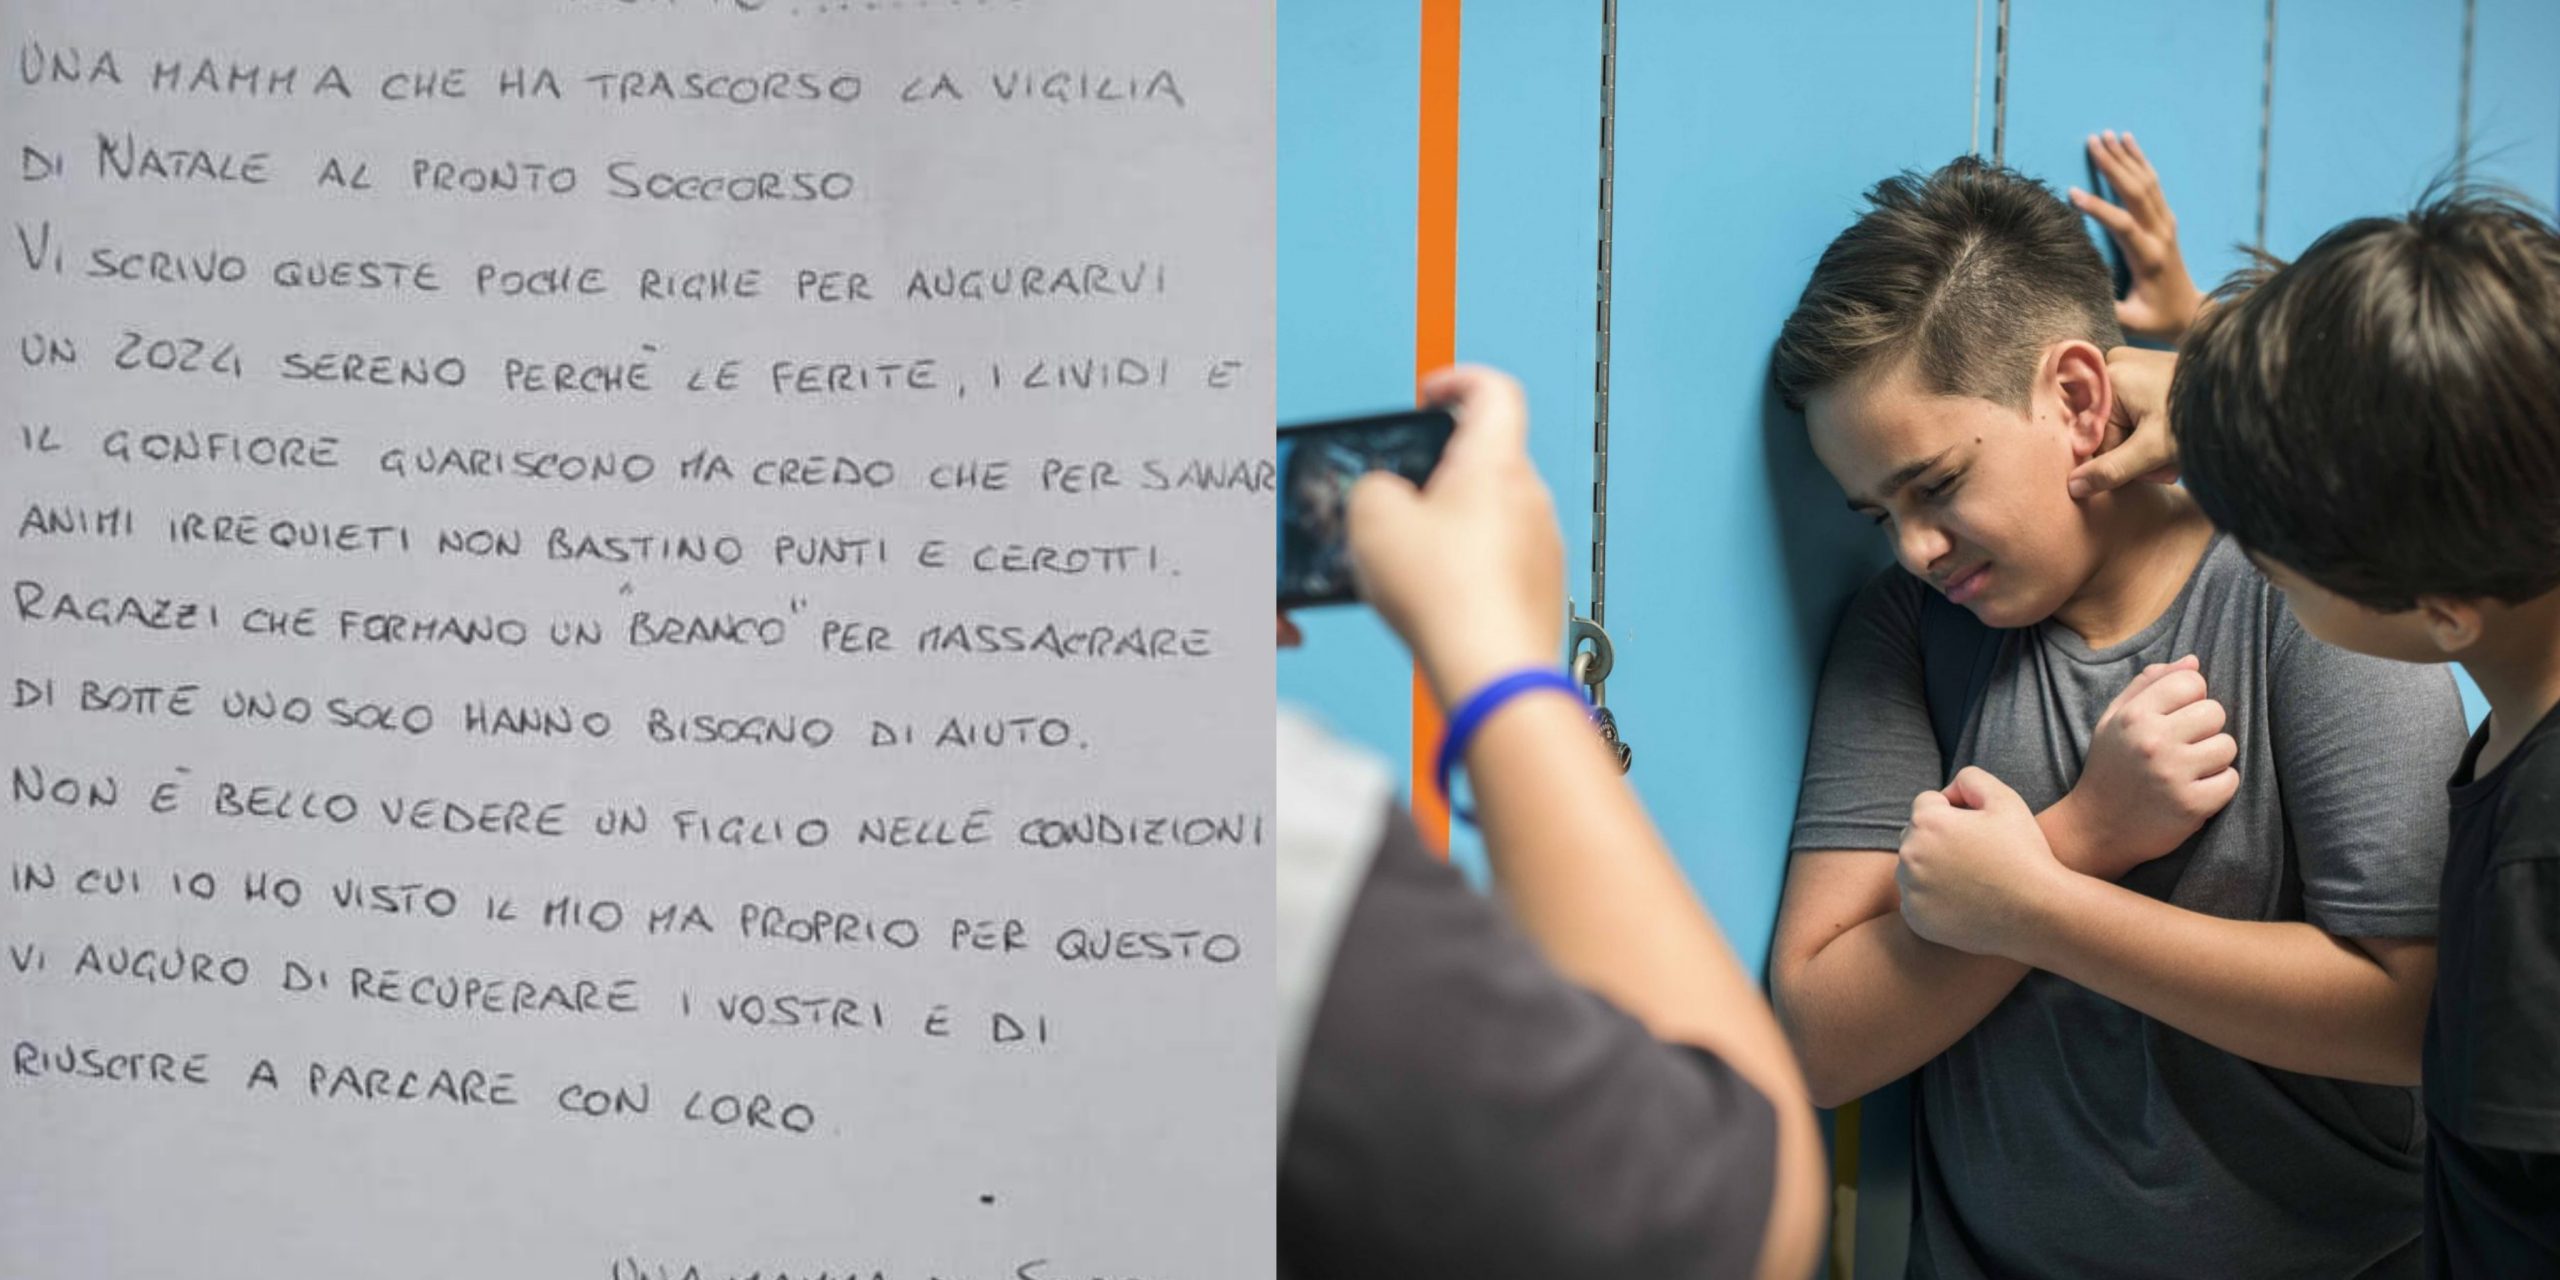 UNA MAMMA CHE HA TRASCORSO LA VIGILIA
DI NATALE AL PRONTO SOCCORSO
VI SCRIVO QUESTE POCHE RIGHE PER AUGURARVI
UN 2024 SERENO PERCHÈ LE FERITE, I LIVIDI E
IL GONFIORE GUARISCONO MA CREDO CHE PER SANAR
ANIMI IRREQUIETI NON BASTINO PUNTI E CEROTTI.
RAGAZZI CHE FORMANO UN "BRANCO" PER MASSACRARE
DI BOTTE UNO SOLO HANNO BISOGNO DI AIUTO.
NON È BELLO VEDERE UN FIGLIO NELLE CONDIZIONI
IN CUI IO HO VISTO IL MIO MA PROPRIO PER QUESTO
VI AUGURO DI RECUPERARE I VOSTRI E DI
RIUSCIRE A PARLARE CON LORO
UNA MAMMA